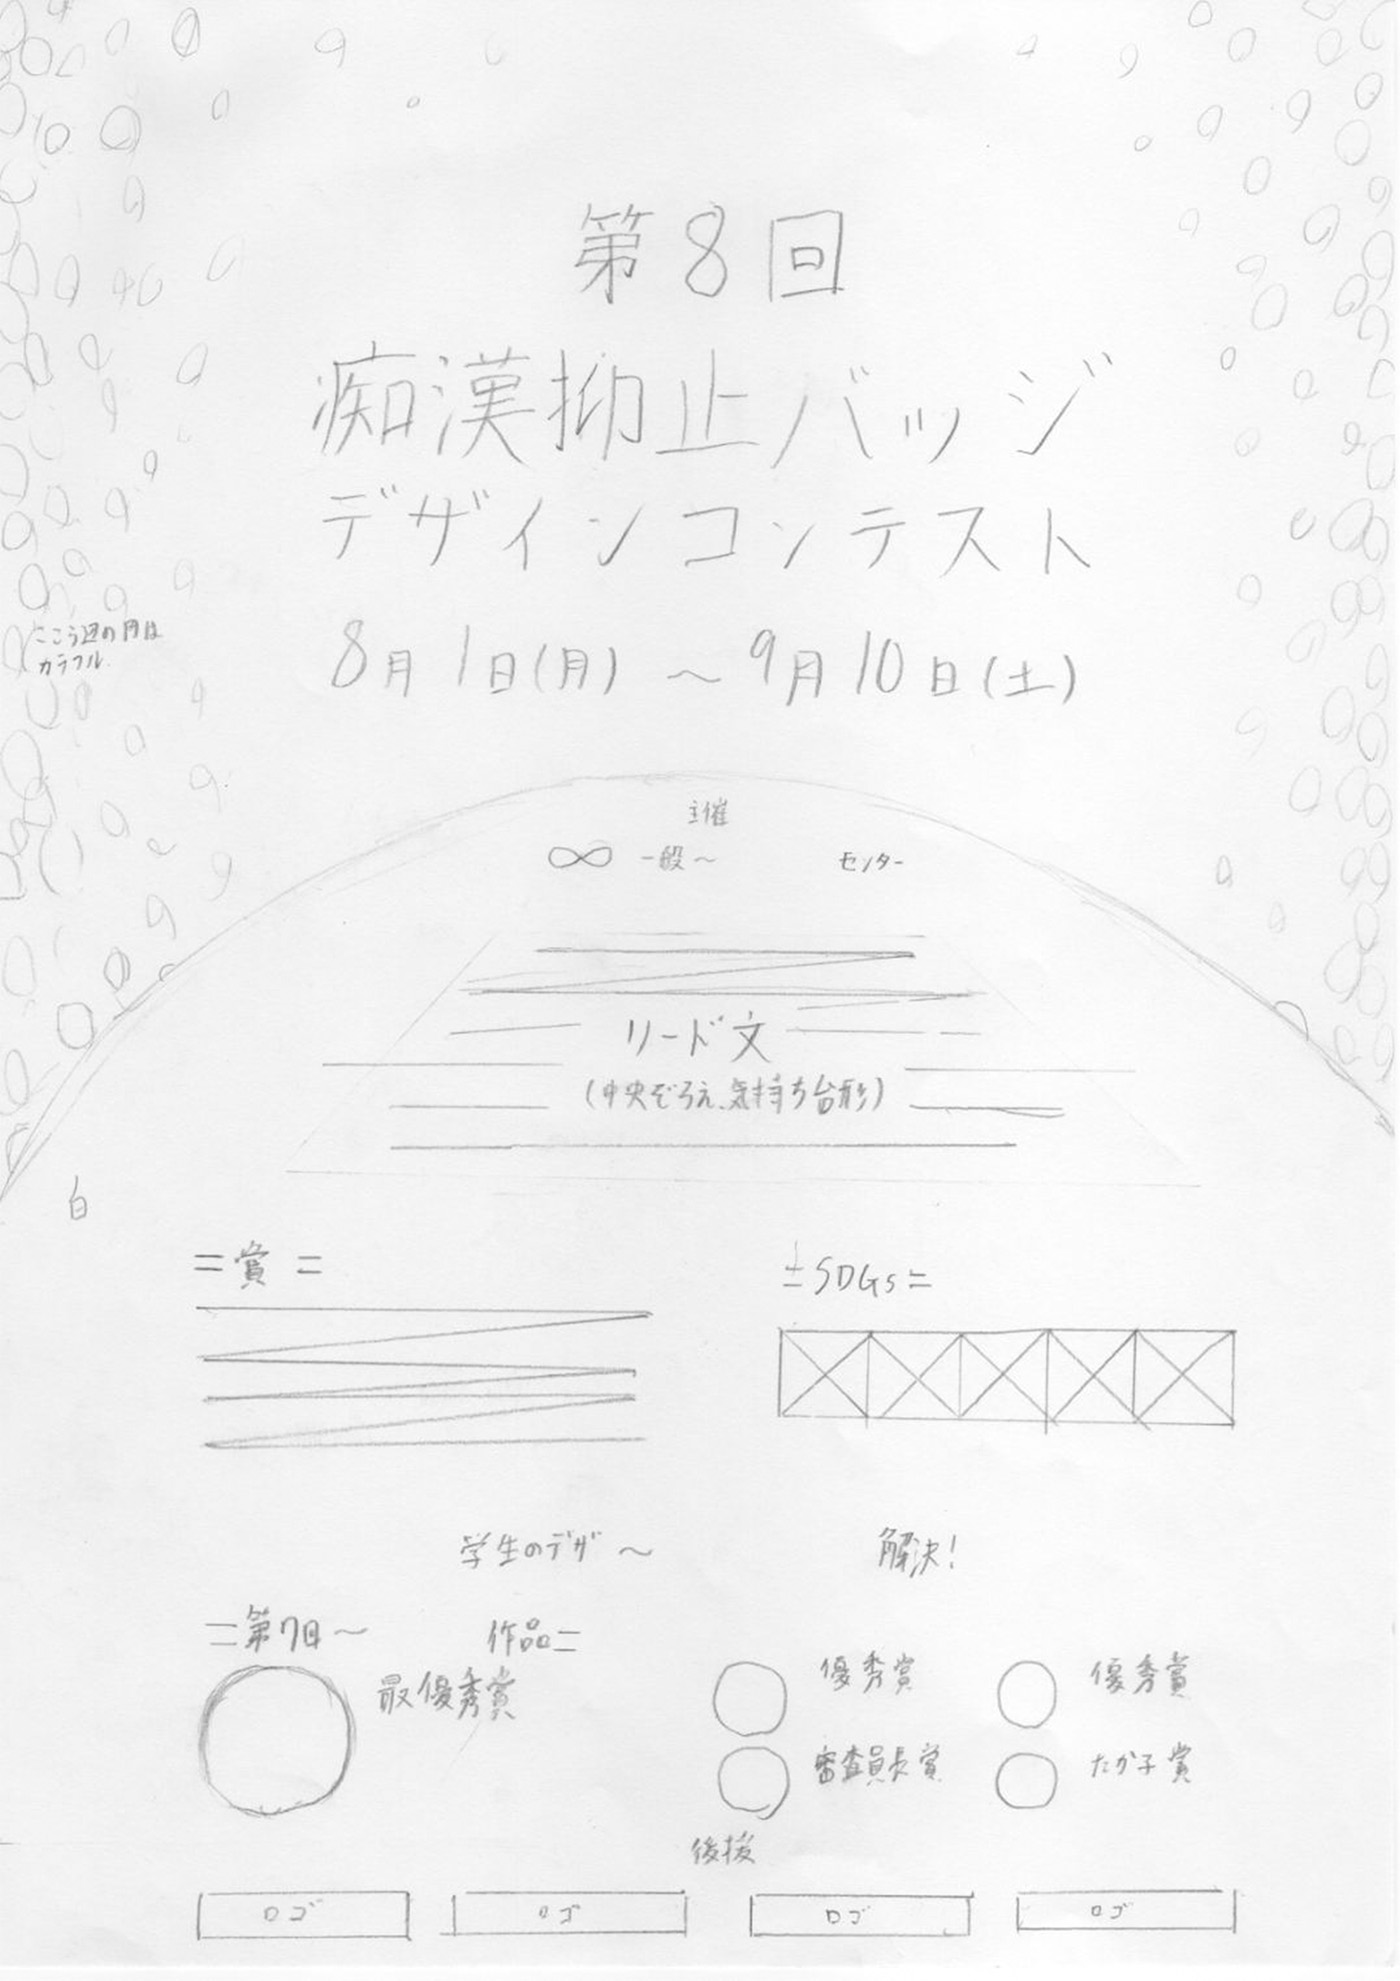 第8回
痴漢抑止バッジ
デザインコンテスト
ここら辺の円は
カラフル
8月1日(月)～9月10日(土)
主催
∞ 一般～ センター
リード文
(中央ぞろえ、気持ち台形)
白
=賞=
=SDGs=
学生のデザ～ 解決!
=第7回～ 作品=
最優秀賞
優秀賞 優秀賞
審査員長賞 たか子賞
後援
ロゴ ロゴ ロゴ ロゴ